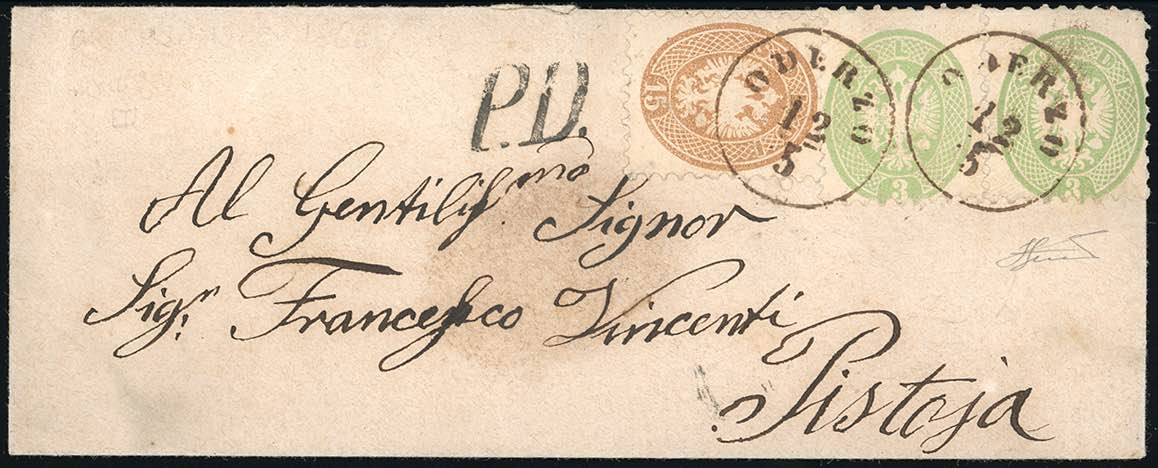 P.D.
15
3
3
ODERZO
12
5
ODERZO
12
5
Al Gentiliſ.mo Signor
Sig.r Franceſco Vincenti
Pistoja